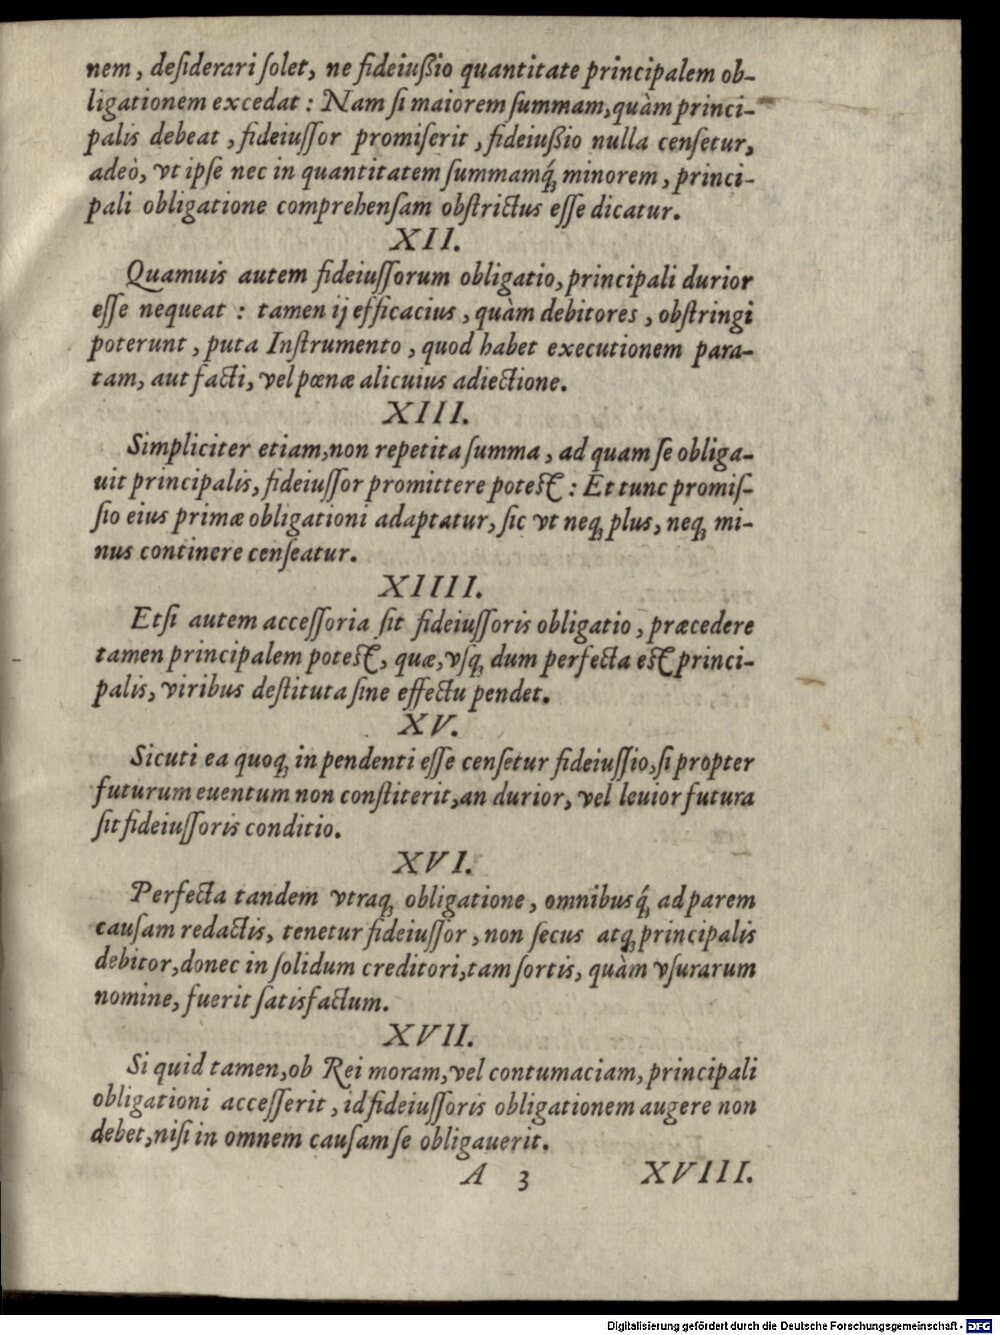 nem, deſiderari ſolet, ne fideiußio quantitate principalem ob-
ligationem excedat : Nam ſi maiorem ſummam, quàm princi-
palis debeat, fideiuſſor promiſerit, fideiußio nulla cenſetur,
adeò, vt ipſe nec in quantitatem ſummamq́ꝫ minorem, princi-
pali obligatione comprehenſam obſtrictus eſſe dicatur.
XII.
Quamuis autem fideiuſſorum obligatio, principali durior
eſſe nequeat : tamen ij efficacius, quàm debitores, obſtringi
poterunt, puta Inſtrumento, quod habet executionem para-
tam, aut facti, vel pœnæ alicuius adiectione.
XIII.
Simpliciter etiam, non repetita ſumma, ad quam ſe obliga-
uit principalis, fideiuſſor promittere poteſt : Et tunc promiſ-
ſio eius primæ obligationi adaptatur, ſic vt neqꝫ plus, neqꝫ mi-
nus continere cenſeatur.
XIIII.
Etſi autem acceſſoria ſit fideiuſſoris obligatio, præcedere
tamen principalem poteſt, quæ, vſqꝫ dum perfecta eſt princi-
palis, viribus deſtituta ſine effectu pendet.
XV.
Sicuti ea quoqꝫ in pendenti eſſe cenſetur fideiuſſio, ſi propter
futurum euentum non conſtiterit, an durior, vel leuior futura
ſit fideiuſſoris conditio.
XVI.
Perfecta tandem vtraqꝫ obligatione, omnibusq́ꝫ ad parem
cauſam redactis, tenetur fideiuſſor, non ſecus atqꝫ principalis
debitor, donec in ſolidum creditori, tam ſortis, quàm vſurarum
nomine, fuerit ſatisfactum.
XVII.
Si quid tamen, ob Rei moram, vel contumaciam, principali
obligationi acceſſerit, id fideiuſſoris obligationem augere non
debet, niſi in omnem cauſam ſe obligauerit.
A 3 XVIII.
Digitalisierung gefördert durch die Deutsche Forschungsgemeinschaft - DFG